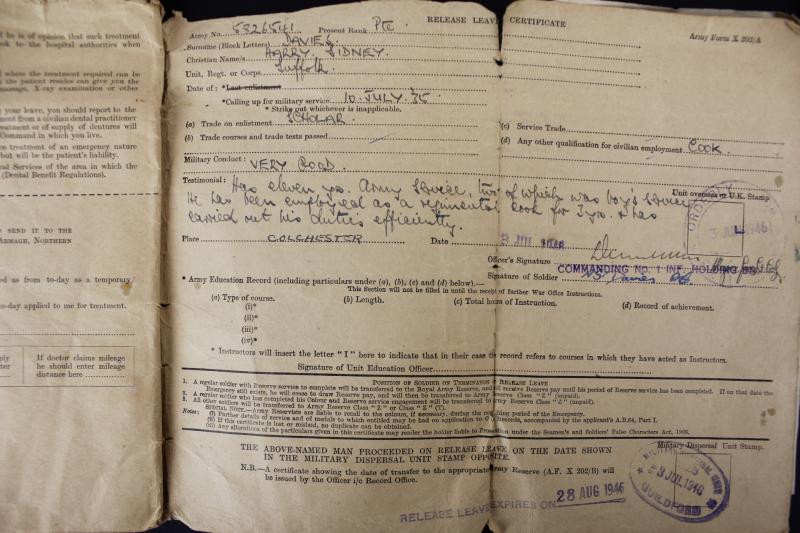 he is of opinion that such treatment
to the hospital authorities when
where the treatment required can be
the patient resides can give you the
massage, X-ray examination or other
your leave, you should report to the
from a civilian dental practitioner
or of supply of dentures will
Command in which you live.
treatment of an emergency nature
but will be the patient's liability.
Services of the area in which the
(Dental Benefit Regulations).
SEND IT TO THE
ARMAGH, NORTHERN
as from to-day as a temporary
applied to me for treatment.
If doctor claims mileage
he should enter mileage
distance here
RELEASE LEAVE CERTIFICATE
Army Form X 202/A
Army No. 5826541 Present Rank Pte.
Surname (Block Letters) DAVIES
Christian Name/s HARRY SIDNEY
Unit, Regt. or Corps Suffolk
Date of: *Last enlistment
*Calling up for military service 10. JULY. 35
* Strike out whichever is inapplicable.
(a) Trade on enlistment SCHOLAR.
(b) Trade courses and trade tests passed
(c) Service Trade
(d) Any other qualification for civilian employment COOK.
Military Conduct: VERY GOOD.
Testimonial: Has eleven yrs. Army Service, two of which was boy's service
He has been employed as a regimental cook for 3 yrs. & has
carried out his duties efficiently.
Unit overseas or U.K. Stamp
JUL 1946
Place COLCHESTER Date JUL 1946
Officer's Signature
COMMANDING No. 1 INF. HOLDING BN.
Signature of Soldier HS Davies Pte
* Army Education Record (including particulars under (a), (b), (c) and (d) below):—
This Section will not be filled in until the receipt of further War Office Instructions.
(a) Type of course. (b) Length. (c) Total hours of Instruction. (d) Record of achievement.
(i)*
(ii)*
(iii)*
(iv)*
* Instructors will insert the letter "I" here to indicate that in their case the record refers to courses in which they have acted as Instructors.
Signature of Unit Education Officer
POSITION OF SOLDIER ON TERMINATION OF RELEASE LEAVE
1. A regular soldier with Reserve service to complete will be transferred to the Royal Army Reserve, and will receive Reserve pay until his period of Reserve service has been completed. If on that date the
Emergency still exists, he will cease to draw Reserve pay, and will then be transferred to Army Reserve Class "Z" (unpaid).
2. A regular soldier who has completed his Colour and Reserve service engagement will be transferred to Army Reserve Class "Z" (unpaid).
3. All other soldiers will be transferred to Army Reserve Class "Z" or Class "Z" (T).
Note: SPECIAL NOTE.—Army Reservists are liable to recall to the colours, if necessary, during the remaining period of the Emergency.
(i) Further details of service and of medals to which entitled may be had on application to O i/c Records, accompanied by the applicant's A.B.64, Part I.
(ii) If this certificate is lost or mislaid, no duplicate can be obtained.
(iii) Any alterations of the particulars given in this certificate may render the holder liable to Prosecution under the Seamen's and Soldiers' False Characters Act, 1906.
THE ABOVE-NAMED MAN PROCEEDED ON RELEASE LEAVE ON THE DATE SHOWN
IN THE MILITARY DISPERSAL UNIT STAMP OPPOSITE.
Military Dispersal Unit Stamp.
N.B.—A certificate showing the date of transfer to the appropriate Army Reserve (A.F. X 202/B) will
be issued by the Officer i/c Record Office.
MILITARY DISPERSAL UNIT
JUL 1946
GUILDFORD
RELEASE LEAVE EXPIRES ON 28 AUG 1946